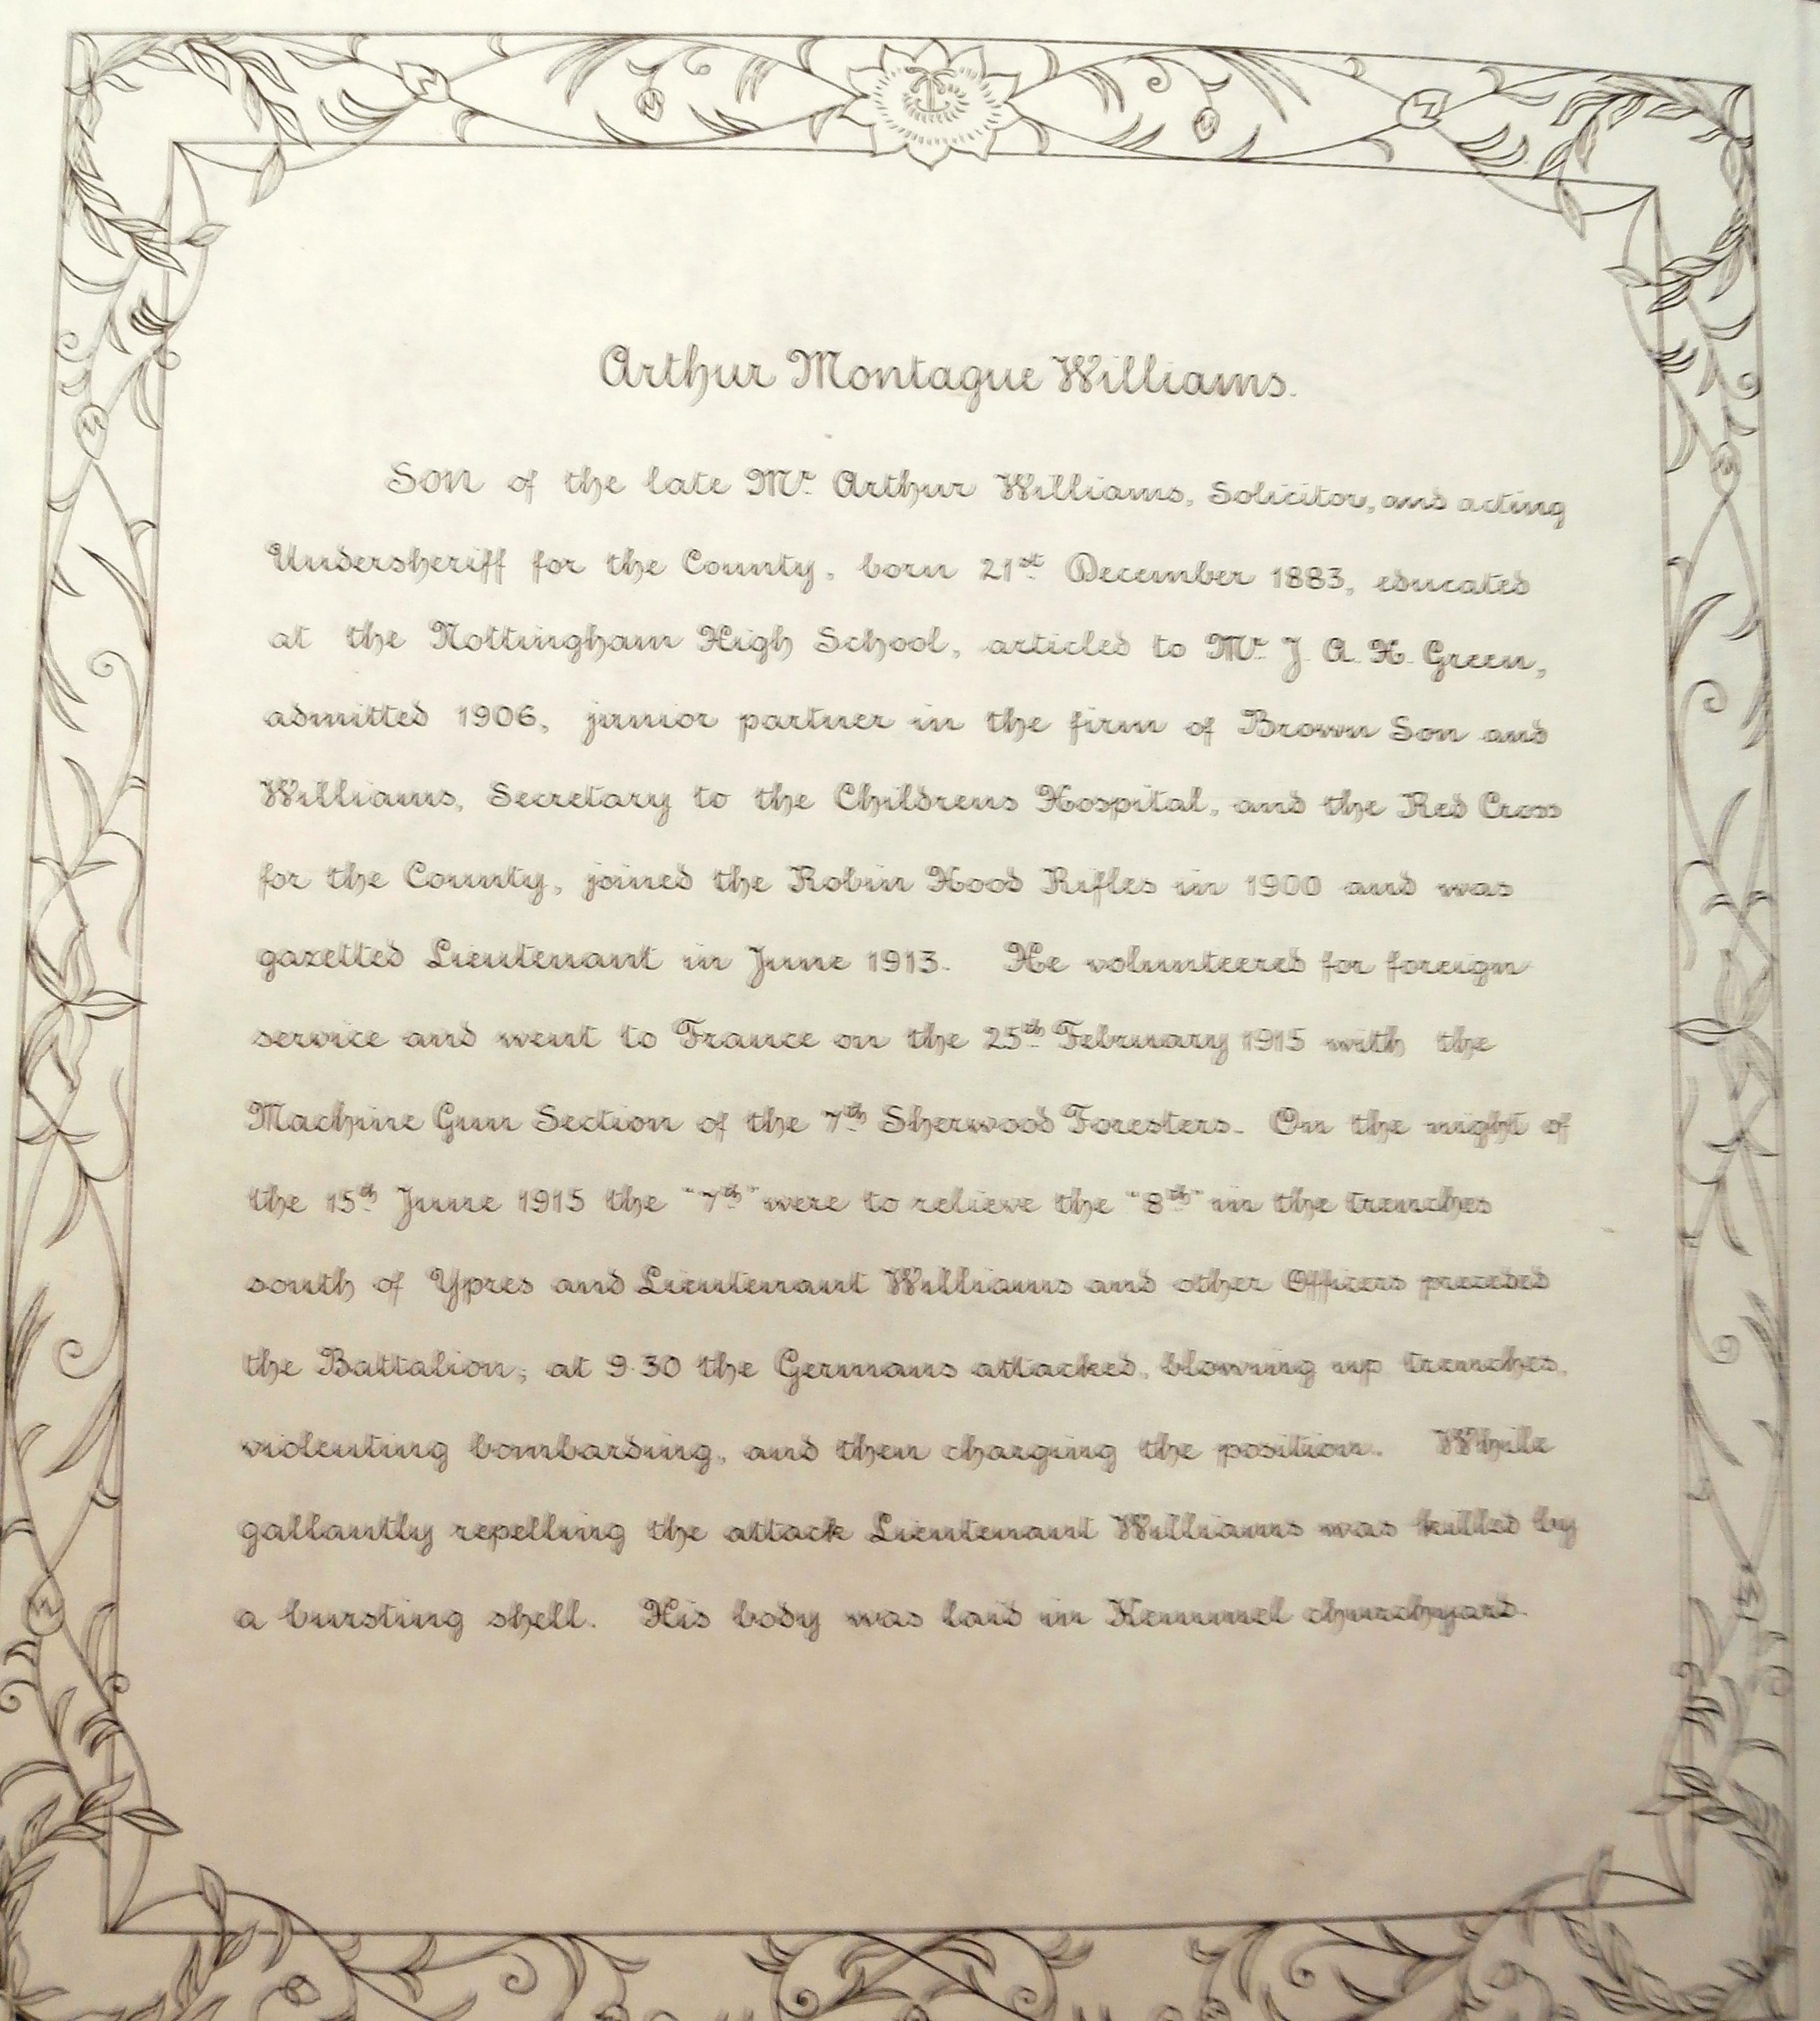 Arthur Montague Williams.
Son of the late Mr. Arthur Williams, Solicitor, and acting
Undersheriff for the County, born 21st December 1883, educated
at the Nottingham High School, articled to Mr. J. A. H. Green,
admitted 1906, junior partner in the firm of Brown Son and
Williams, Secretary to the Childrens Hospital, and the Red Cross
for the County, joined the Robin Hood Rifles in 1900 and was
gazetted Lieutenant in June 1913. He volunteered for foreign
service and went to France on the 25th February 1915 with the
Machine Gun Section of the 7th Sherwood Foresters. On the night of
the 15th June 1915 the "7th" were to relieve the "8th" in the trenches
south of Ypres and Lieutenant Williams and other Officers preceded
the Battalion; at 9.30 the Germans attacked, blowing up trenches,
violenting bombarding, and then charging the position. While
gallantly repelling the attack Lieutenant Williams was killed by
a bursting shell. His body was laid in Kemmel churchyard.